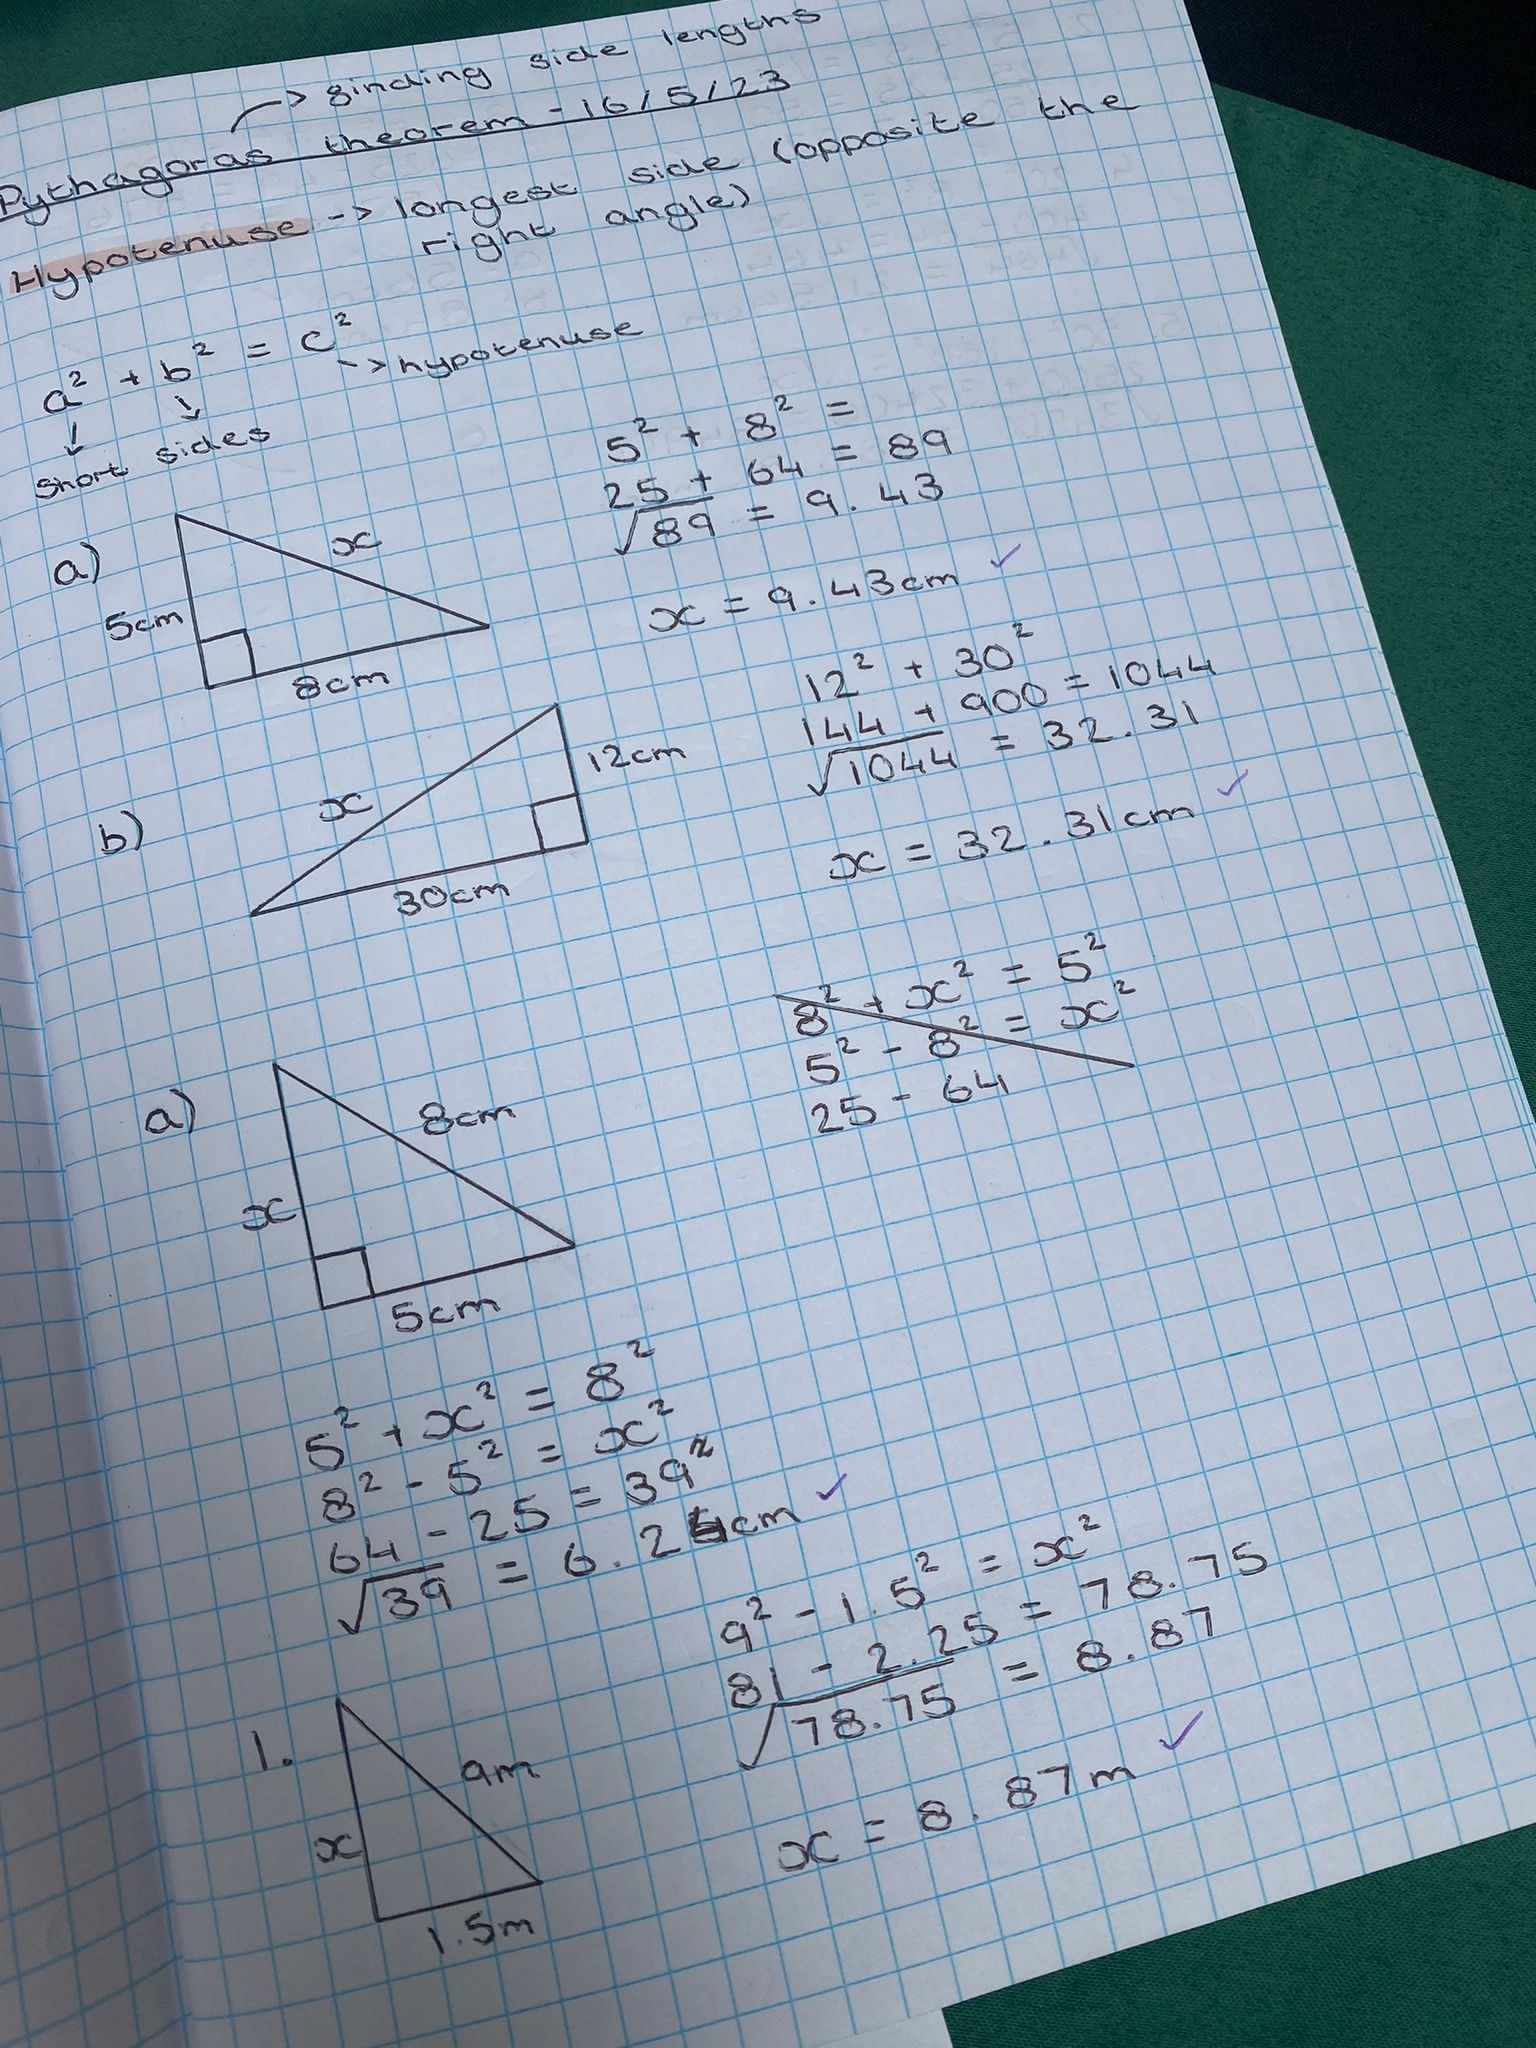 -> finding side lengths
Pythagoras theorem - 16/5/23
Hypotenuse -> longest side (opposite the
right angle)
a² + b² = c²
-> hypotenuse
short sides
a)
5cm
x
8cm
5² + 8² =
25 + 64 = 89
√89 = 9.43
x = 9.43cm ✓
b)
x
12cm
30cm
12² + 30²
144 + 900 = 1044
√1044 = 32.31
x = 32.31cm ✓
8² + x² = 5²
5² - 8² = x²
25 - 64
a)
8cm
x
5cm
5² + x² = 8²
8² - 5² = x²
64 - 25 = 39²
√39 = 6.24cm ✓
1.
9m
x
1.5m
9² - 1.5² = x²
81 - 2.25 = 78.75
√78.75 = 8.87
x = 8.87m ✓